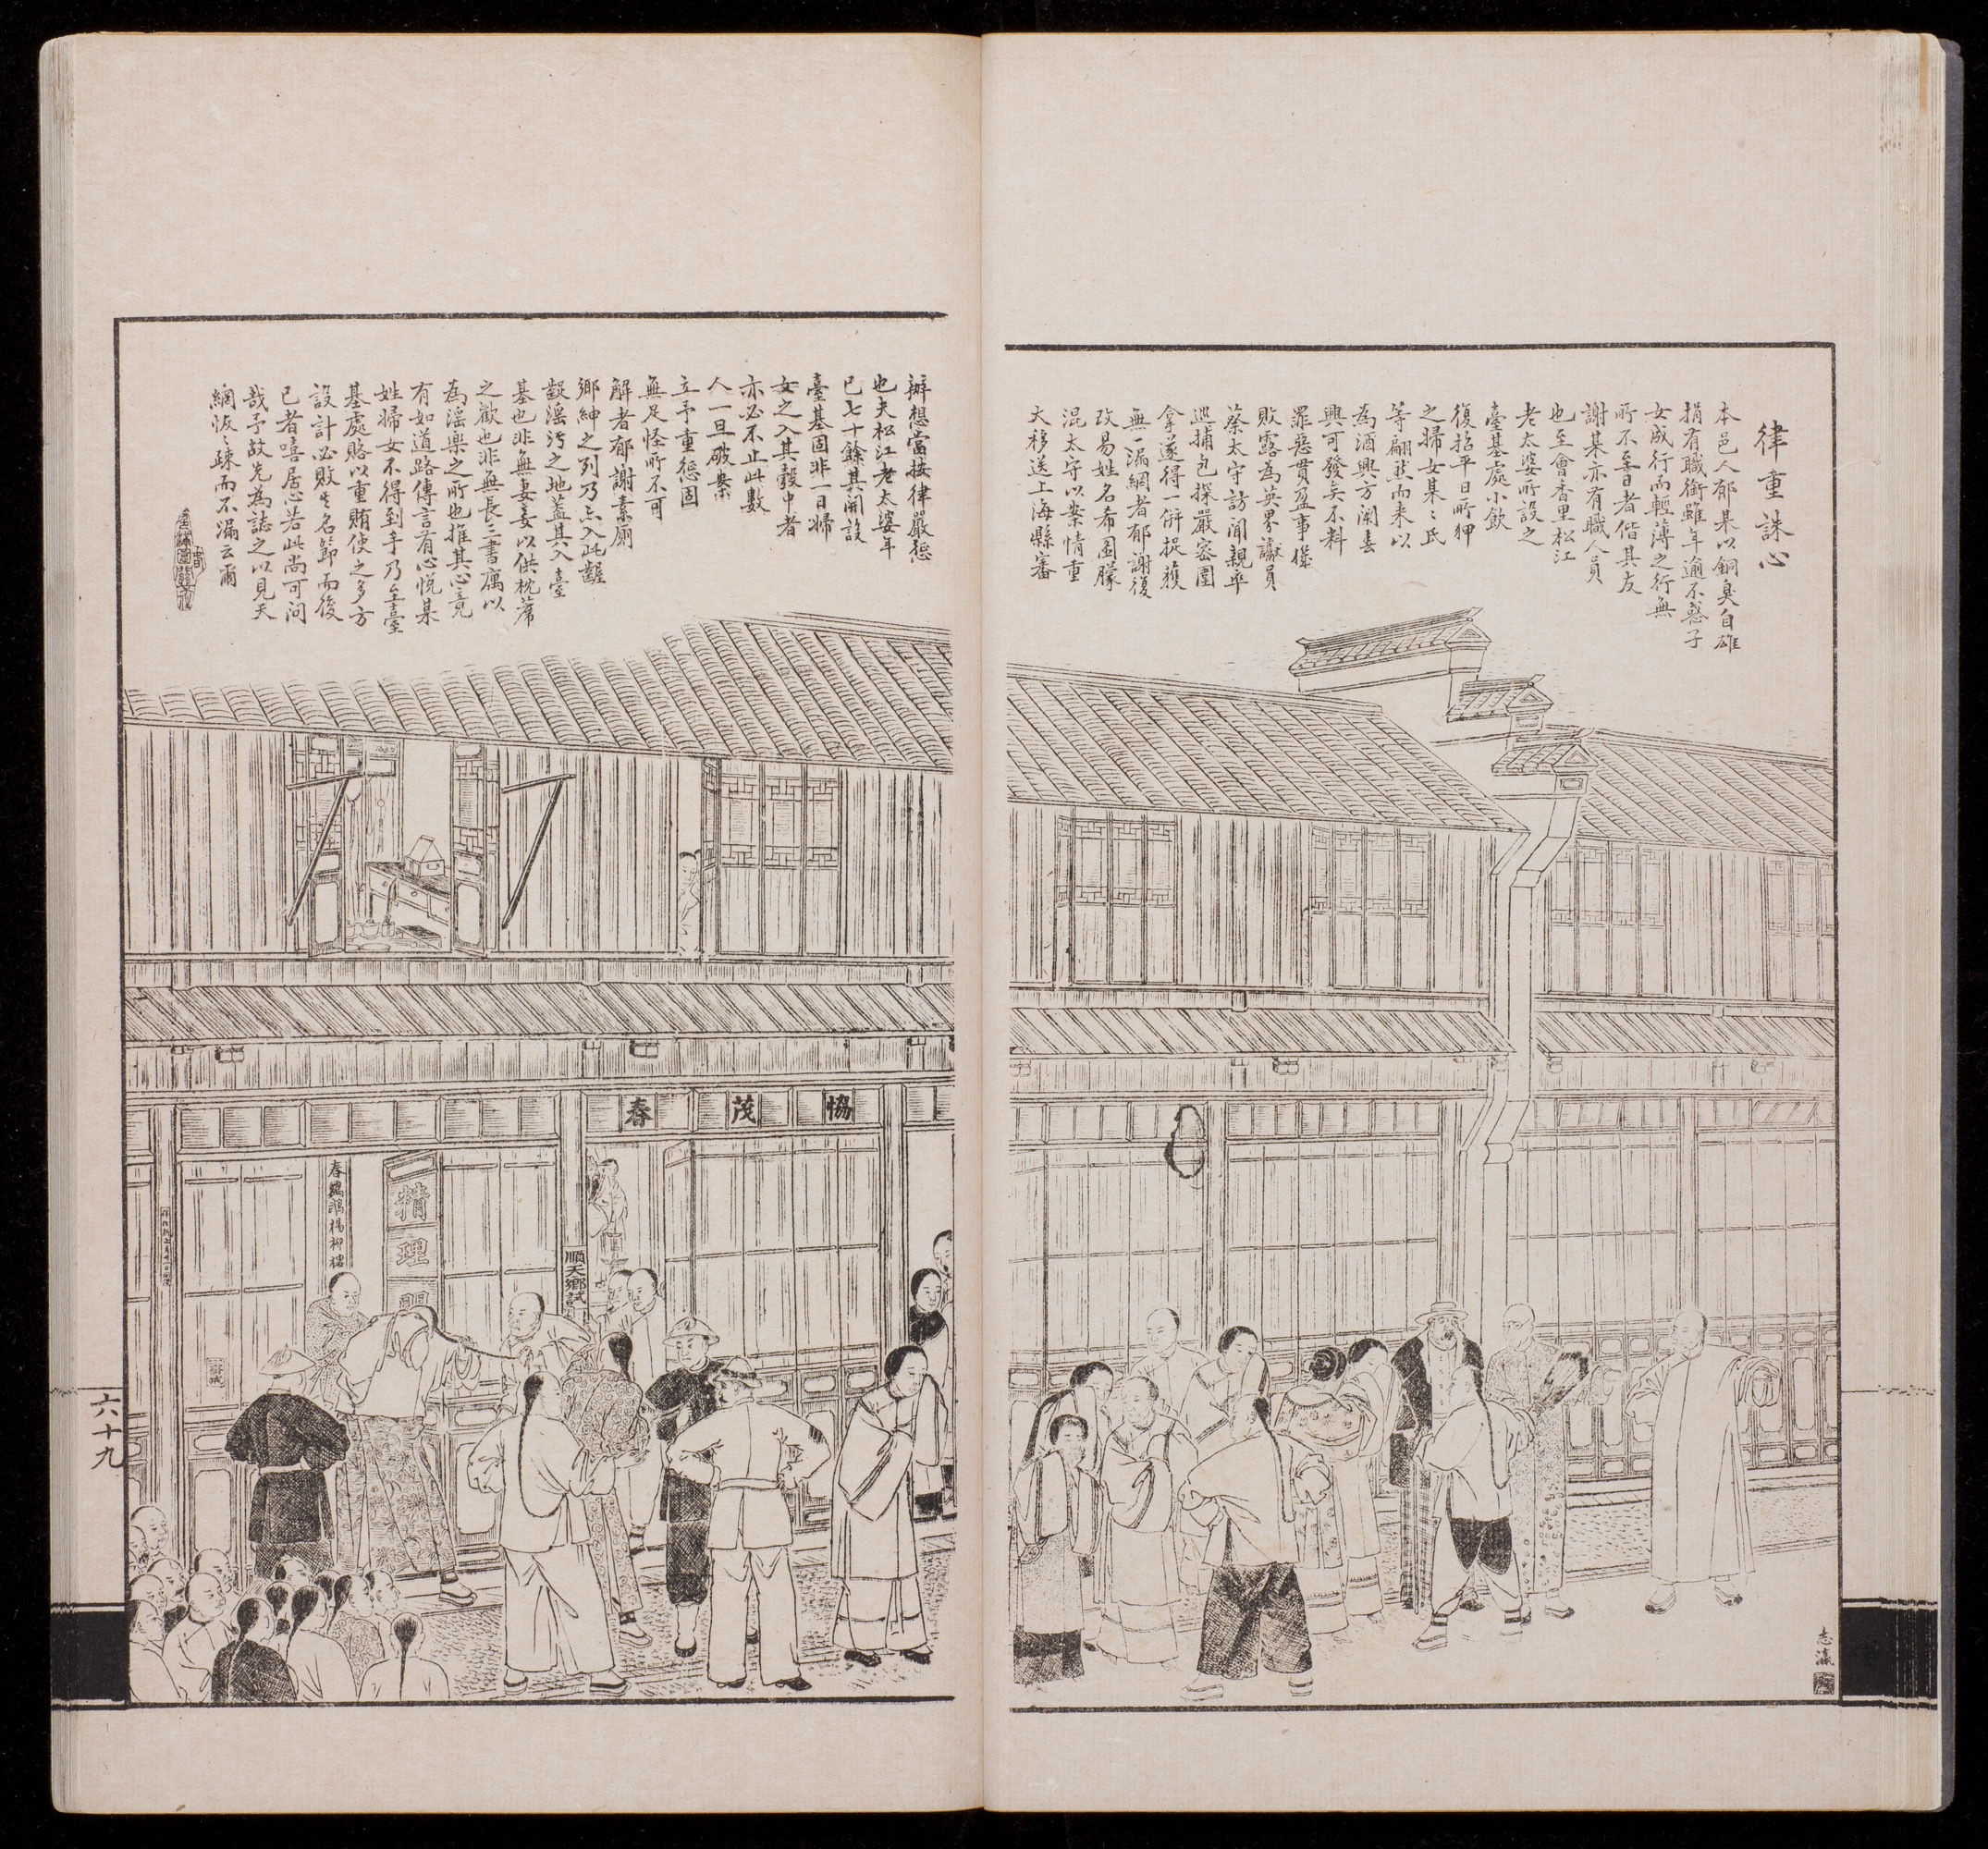 律重誅心
本邑人郁某以銅臭自雄
捐有職銜雖年逾不惑子
女成行而輕薄之行無
所不至日者偕其友
謝某亦有職人員
也至會香里松江
老太婆所設之
臺基處小飲
復招平日所狎
之婦女某〻氏
等翩然而來以
為酒興方闌春
興可發矣不料
罪惡貫盈事機
敗露為英界讞員
蔡太守訪聞親率
巡捕包探嚴密圍
拿遂得一併捉獲
無一漏網者郁謝復
改易姓名希圖朦
混太守以案情重
大移送上海縣審
辦想當按律嚴懲
也夫松江老太婆年
已七十餘其開設
臺基固非一日婦
女之入其彀中者
亦必不止此數
人一旦破案
立予重懲固
無足怪所不可
解者郁謝素廁
鄉紳之列乃亦入此齷
齪淫污之地蓋其入臺
基也非無妻妾以供枕蓆
之歡也非無長三書寓以
為淫樂之所也推其心竟
有如道路傳言有心悅某
姓婦女不得到手乃至臺
基處賂以重賄使之多方
設計必敗其名節而後
已者嘻居心若此尚可問
哉予故先為誌之以見天
網恢〻疎而不漏云爾
協茂春
精理門
順天鄉試
六十九
志瀛